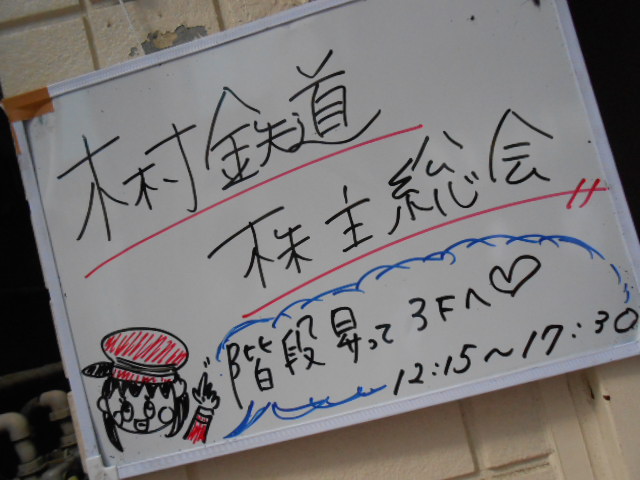 木村鉄道
株主総会
階段昇って3Fへ♡
12:15〜17:30